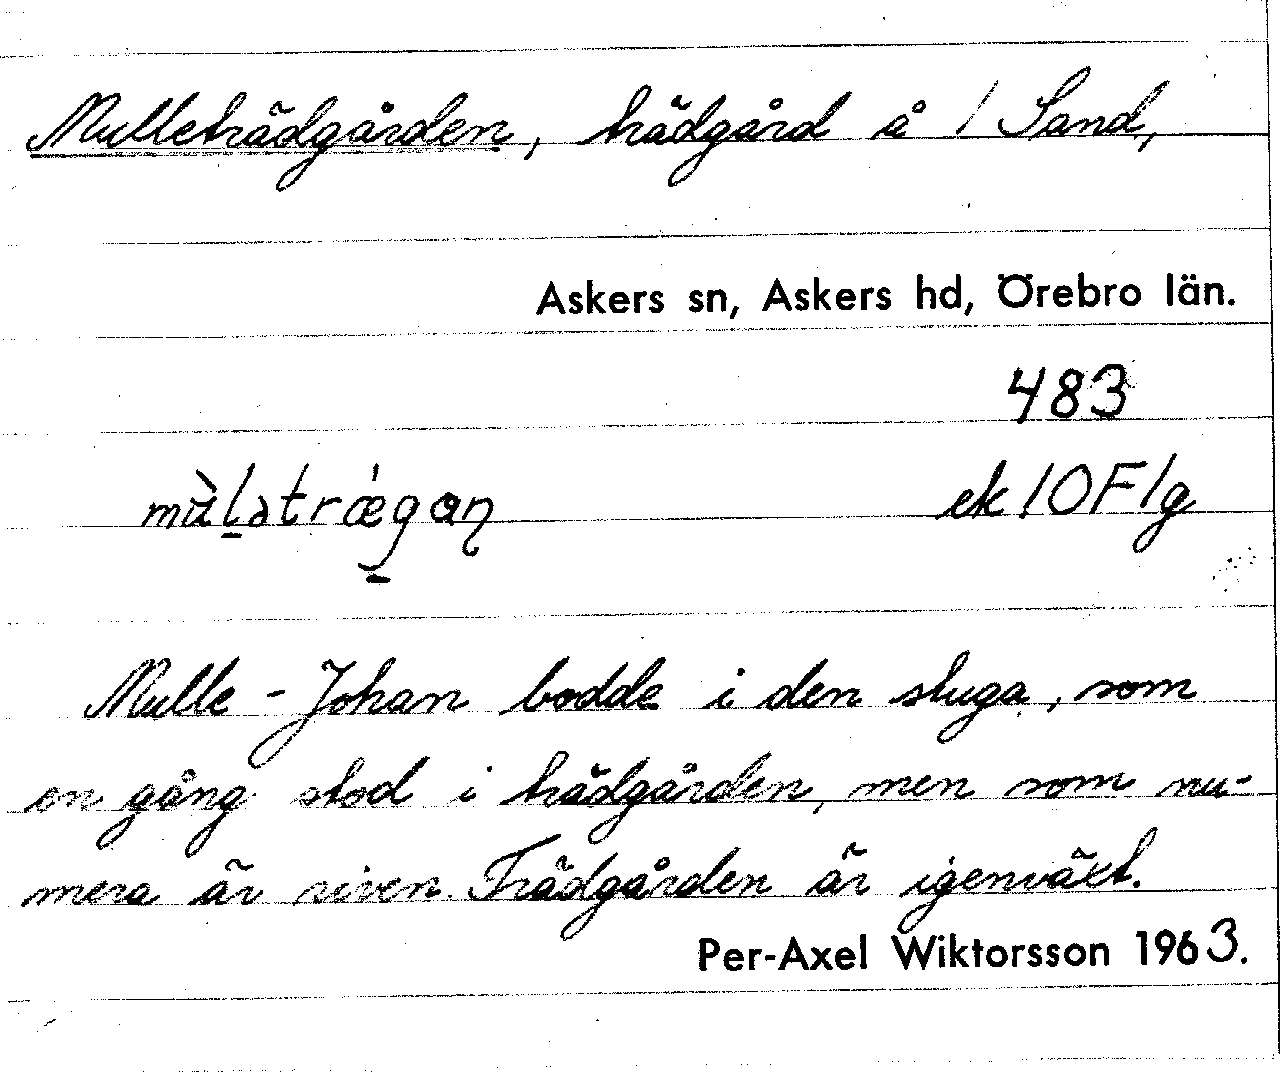 Mulleträdgården, trädgård å 1 Sand,
Askers sn, Askers hd, Örebro län.
483
ek 10F1g
Mulle-Johan bodde i den stuga, som
en gång stod i trädgården, men som nu-
mera är riven. Trädgården är igenväxt.
Per-Axel Wiktorsson 1963.